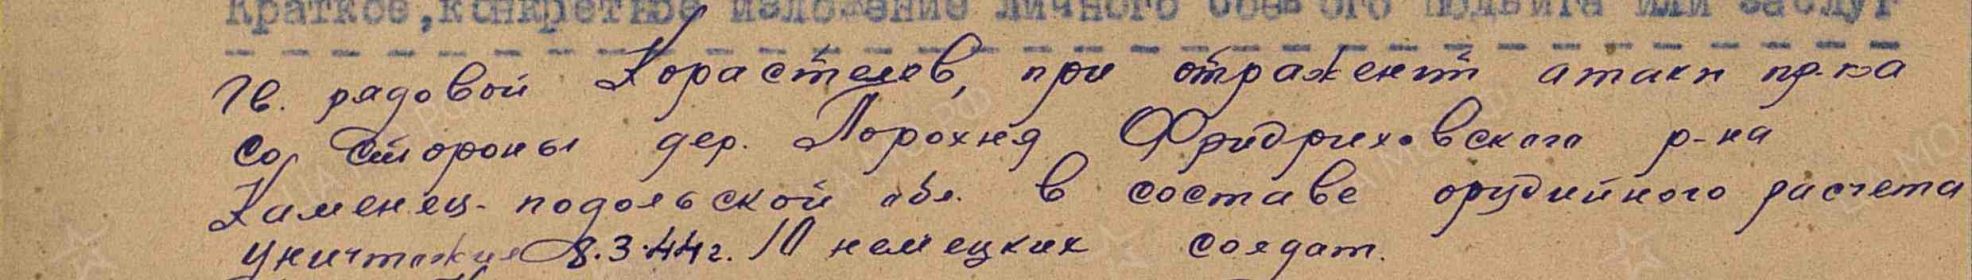 Краткое, конкретное изложение личного боевого подвига или заслуг
Гв. рядовой Корастелев, при отражении атаки пр-ка
со стороны дер. Порохня Фридриховского р-на
Каменец-подольской обл. в составе орудийного расчета
уничтожил 8.3.44г. 10 немецких солдат.